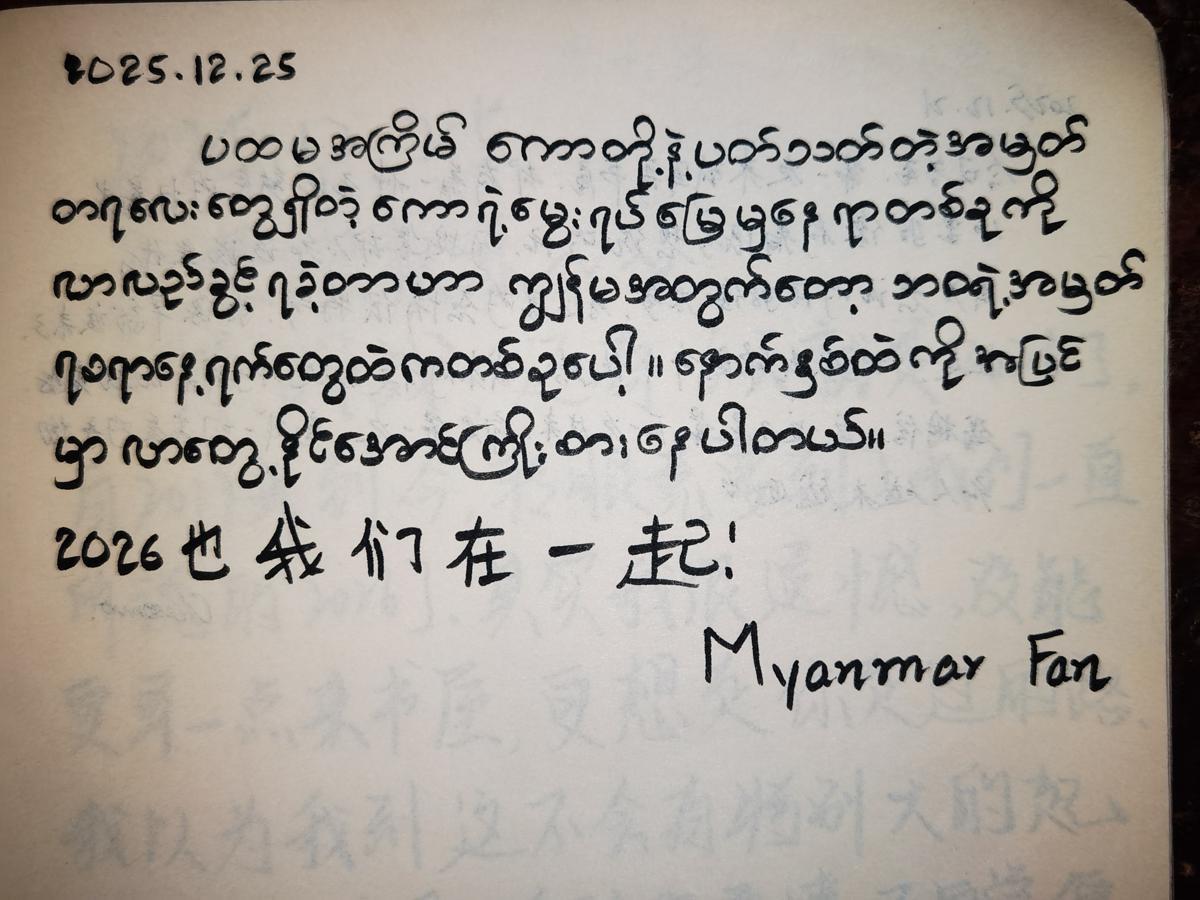 2025.12.25
ပထမအကြိမ် ကောတို့နဲ့ပတ်သတ်တဲ့အမှတ်
တရလေးတွေရှိတဲ့ ကောရဲ့မွေးရပ်မြေမှနေရာတစ်ခုကို
လာလည်ခွင့်ရခဲ့တာဟာ ကျွန်မအတွက်တော့ ဘဝရဲ့အမှတ်
ရစရာနေ့ရက်တွေထဲကတစ်ခုပေါ့။ နောက်နှစ်ထဲကိုအပြင်
မှာ လာတွေ့နိုင်အောင်ကြိုးစားနေပါတယ်။
2026也我们在一起!
Myanmar Fan